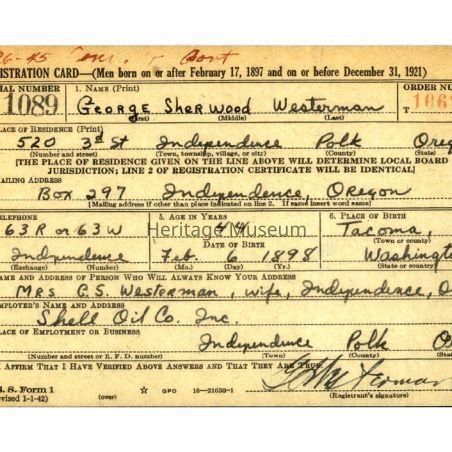 96-45
REGISTRATION CARD—(Men born on or after February 17, 1897 and on or before December 31, 1921)
SERIAL NUMBER 1. NAME (Print) ORDER NU
1089 George Sherwood Westerman T
(First) (Middle) (Last)
PLACE OF RESIDENCE (Print)
520 3rd St Independence Polk Oreg
(Number and street) (Town, township, village, or city) (County) (S
[THE PLACE OF RESIDENCE GIVEN ON THE LINE ABOVE WILL DETERMINE LOCAL BOARD
JURISDICTION; LINE 2 OF REGISTRATION CERTIFICATE WILL BE IDENTICAL]
MAILING ADDRESS
Box 297 Independence, Oregon
[Mailing address if other than place indicated on line 2. If same insert word same]
TELEPHONE 5. AGE IN YEARS 6. PLACE OF BIRTH
63R or 63W 44 Tacoma,
Heritage Museum
DATE OF BIRTH (Town or county)
Independence Feb. 6 1898 Washington
(Exchange) (Number) (Mo.) (Day) (Yr.) (State or country)
NAME AND ADDRESS OF PERSON WHO WILL ALWAYS KNOW YOUR ADDRESS
Mrs G.S. Westerman, wife, Independence, O
EMPLOYER'S NAME AND ADDRESS
Shell Oil Co. Inc
PLACE OF EMPLOYMENT OR BUSINESS
Independence Polk O
(Number and street or R. F. D. number) (Town) (County) (State
I AFFIRM THAT I HAVE VERIFIED ABOVE ANSWERS AND THAT THEY ARE TRUE.
S. S. Form 1
(Revised 1-1-42) (over) ☆ GPO 16—21630-1 (Registrant's signature)